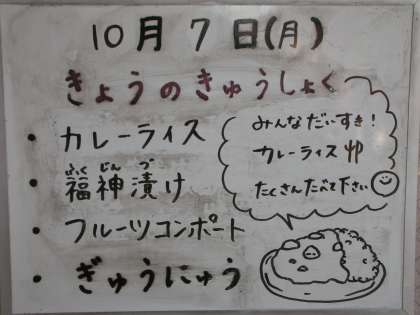 10月7日(月)
きょうのきゅうしょく
・カレーライス
・福神漬け
ふくじんづ
・フルーツコンポート
・ぎゅうにゅう
みんなだいすき!
カレーライス
たくさんたべて下さい